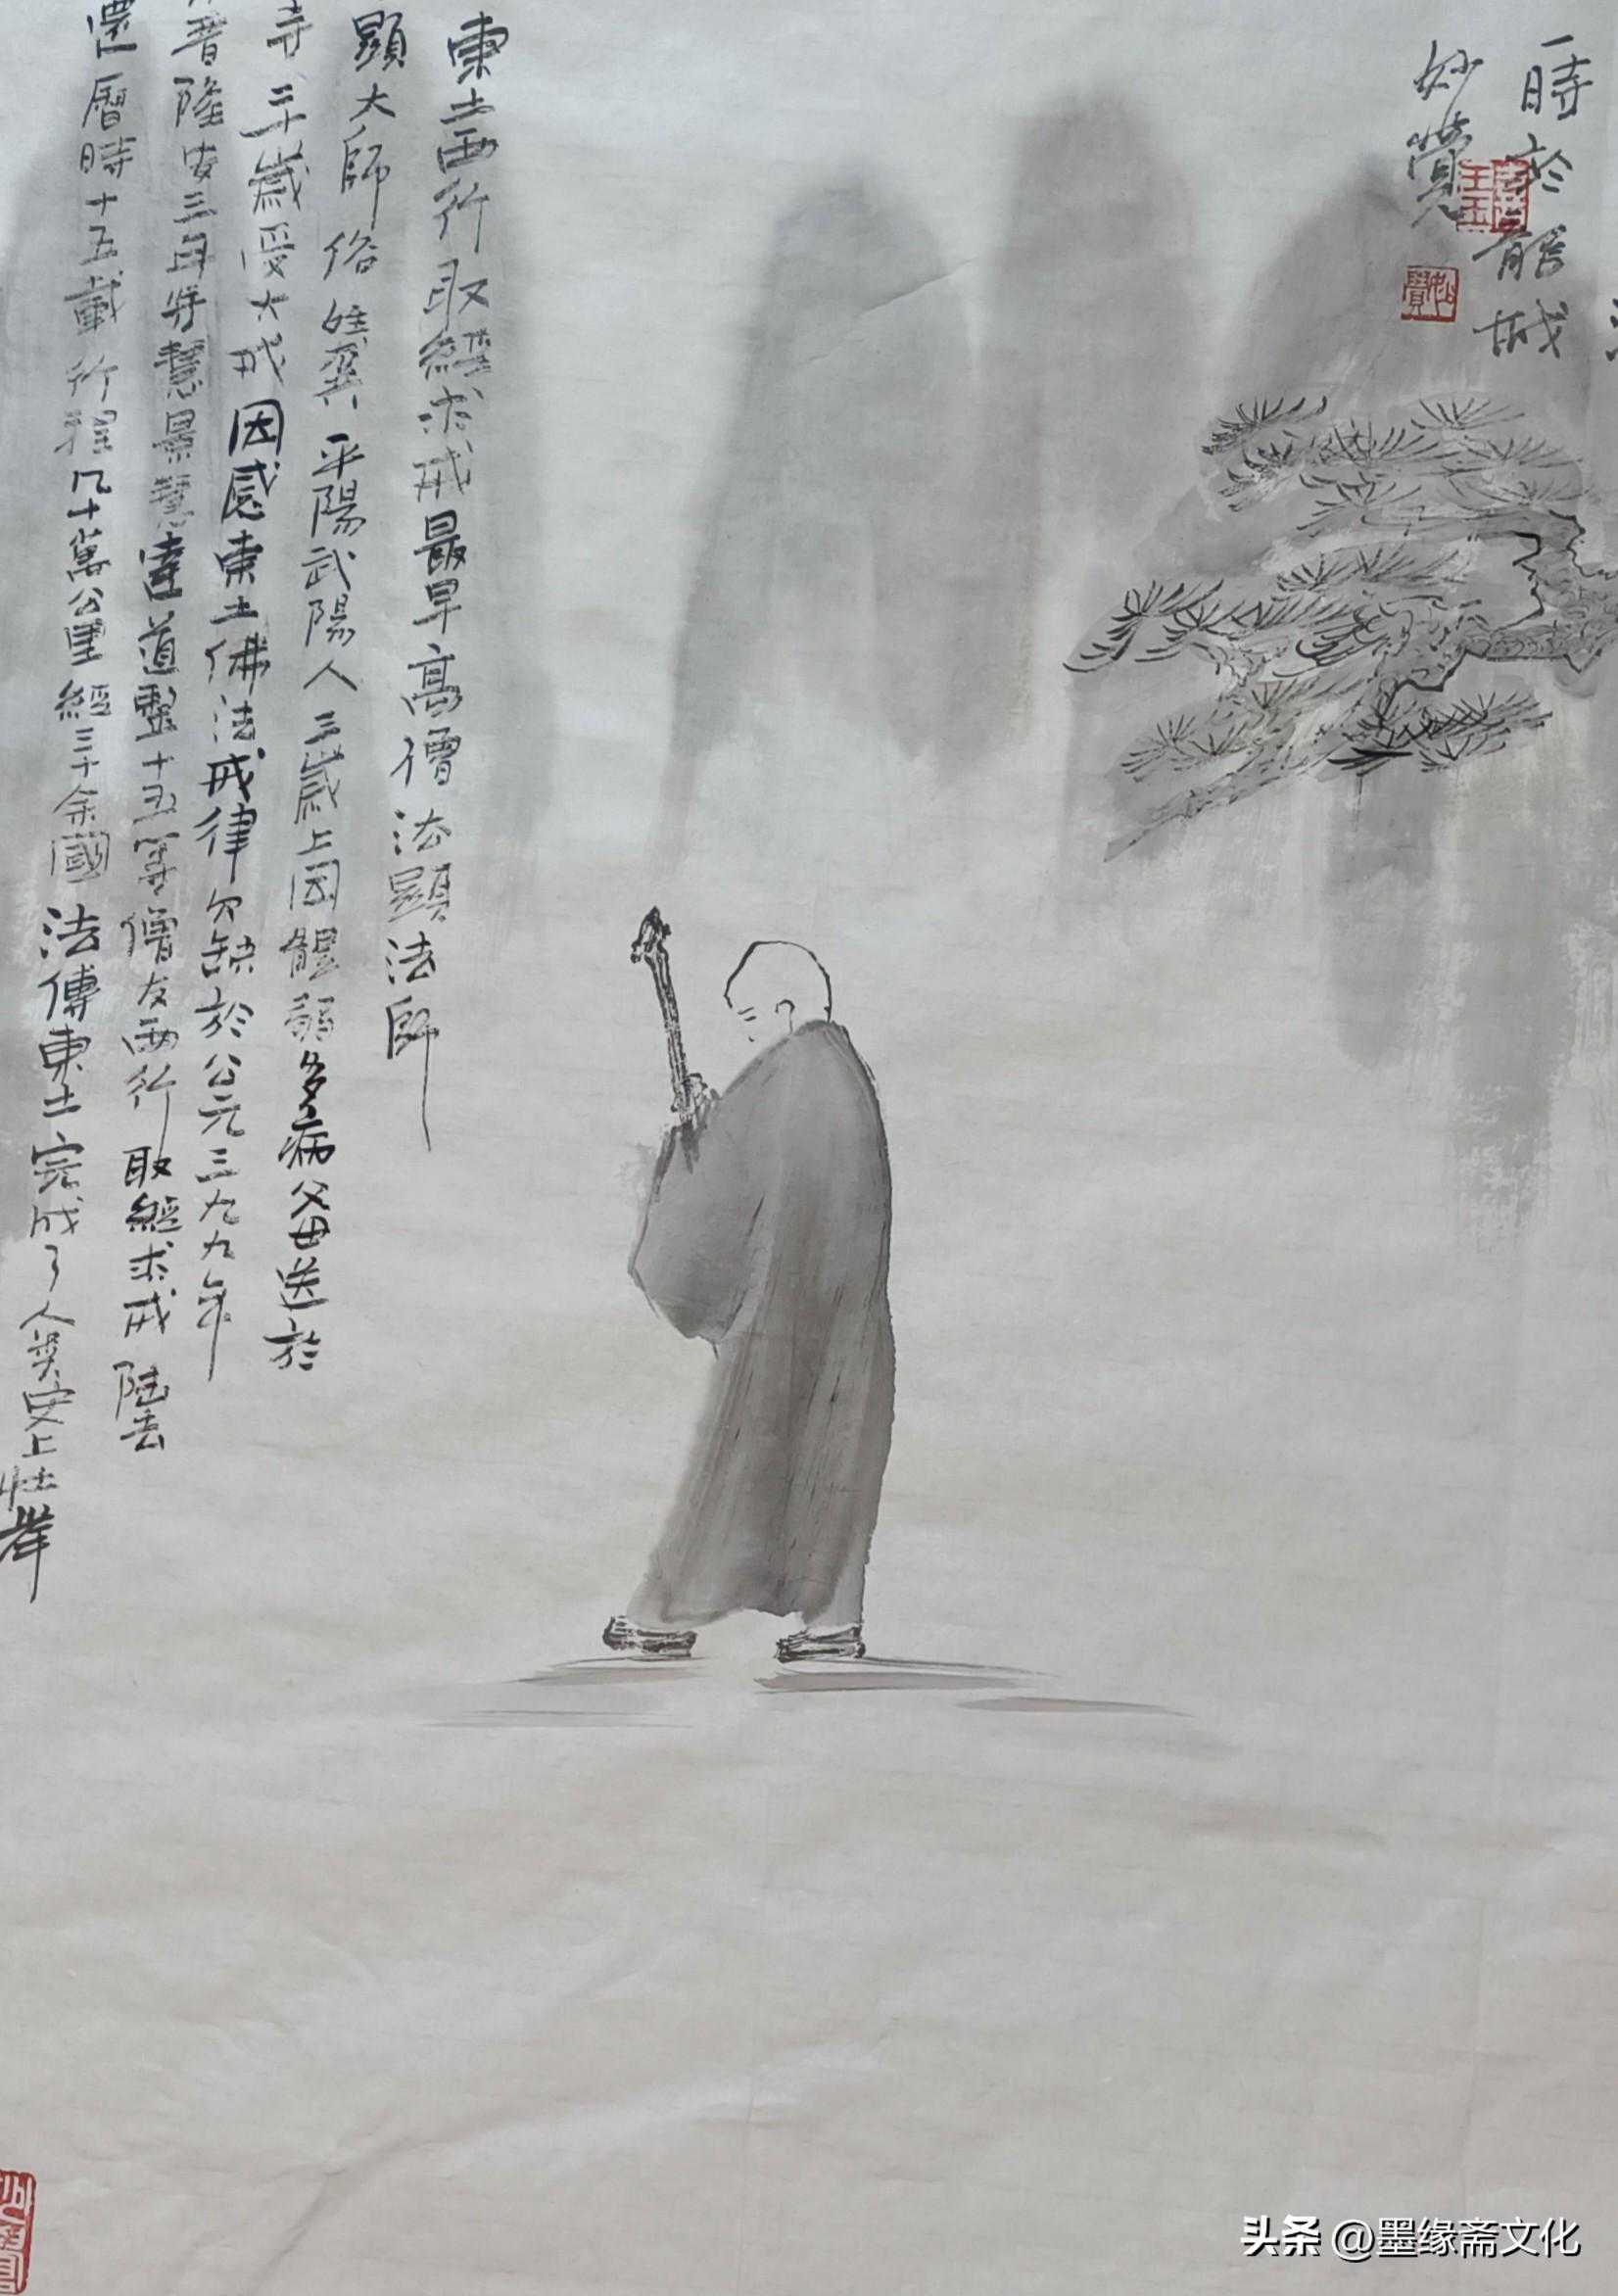 一時於龍城
妙覺
東土西行取經求戒最早高僧法顯法師
顯大師俗姓龔平陽武陽人三歲上因體弱多病父母送於
寺三十歲受大戒因感東土佛法戒律欠缺於公元三九九年
晋隆安三年与慧景慧達道整十五等僧友西行取經求戒陸去
還歷時十五載行程几十萬公里經三十余國法傳東土完成了人类史上壮舉
头条 @墨缘斋文化